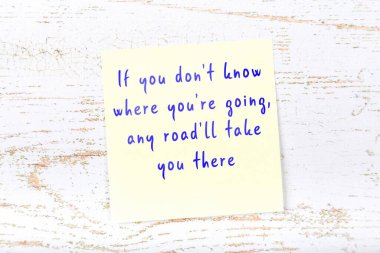 If you don't know
where you're going,
any road'll take
you there